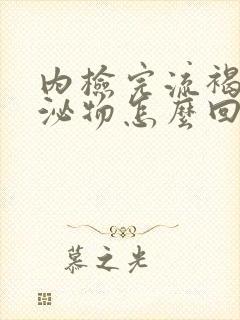 內檢完流褐
泌物怎麼回
慕之光